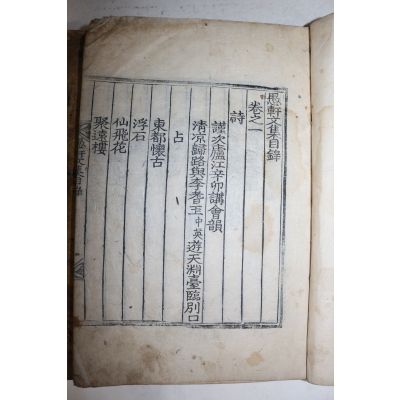 愚軒文集目錄
卷之一
詩
謹次廬江辛卯講會韻
淸凉歸路與李耆玉中英遊天淵臺臨別口
占
東都懷古
浮石
仙飛花
聚遠樓